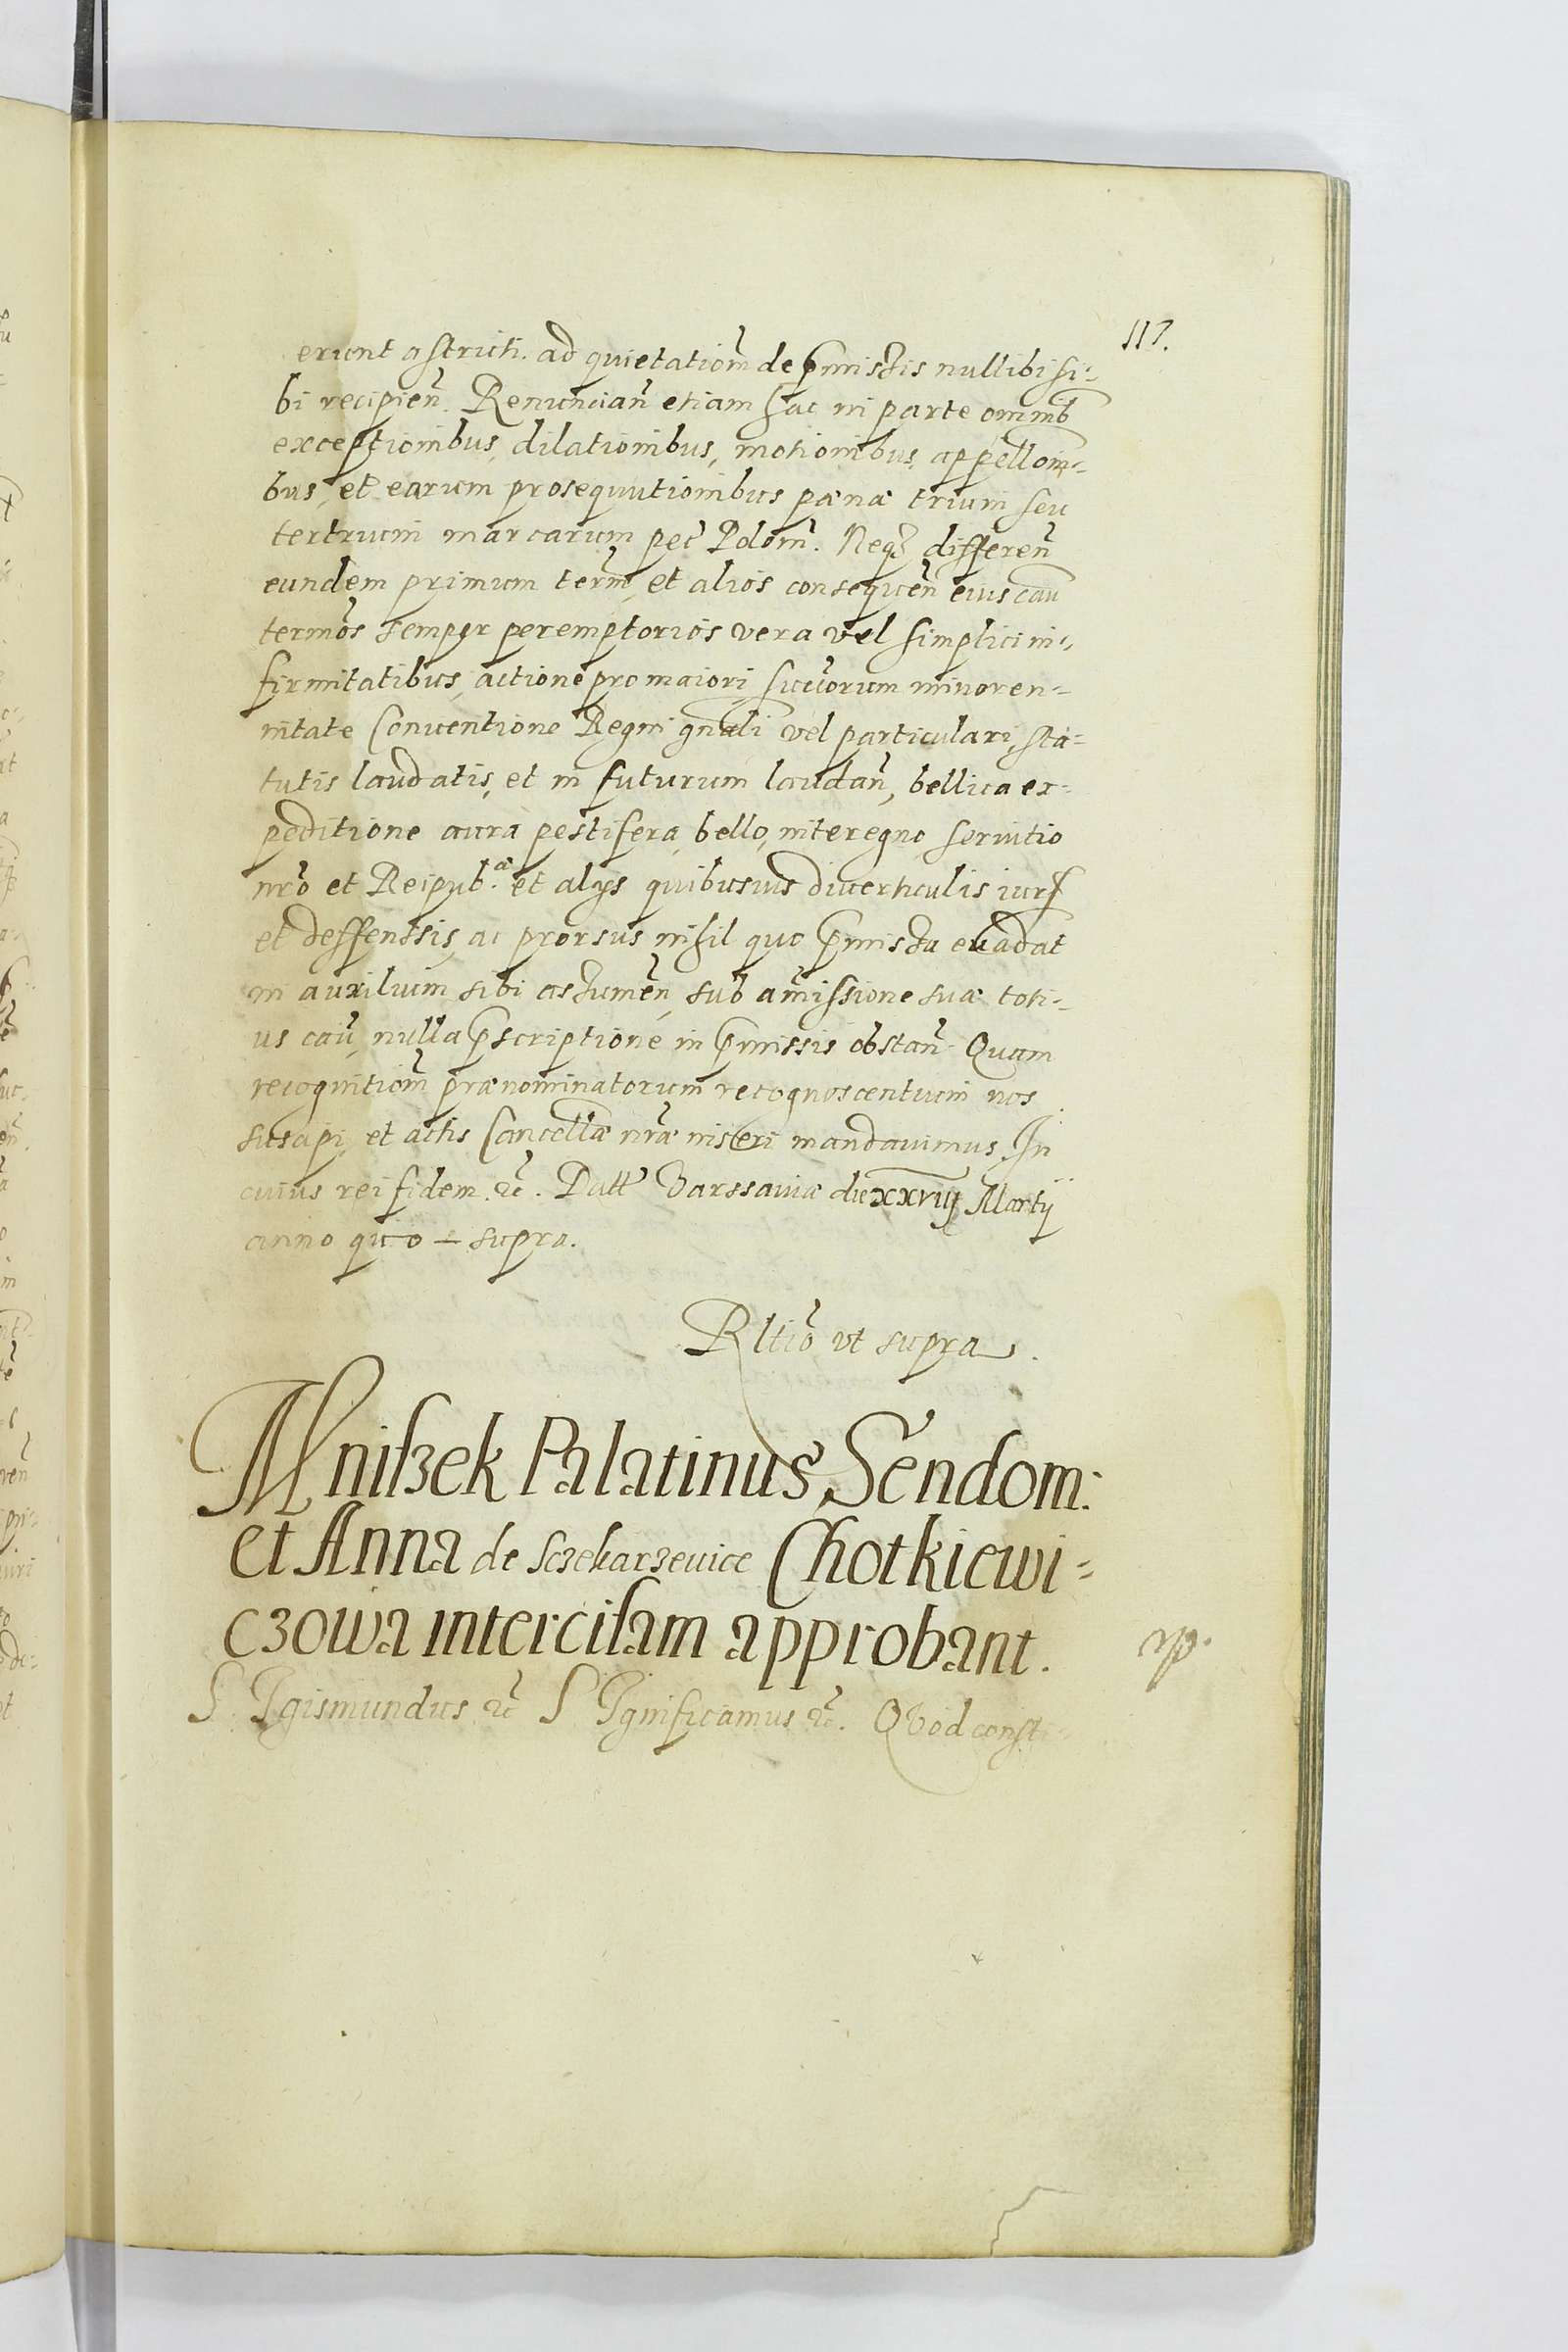 117.
erunt astricti. ad quietatiom̃ de p̃missis nullibi si-
bi recipien̄. Renuncian̄ etiam hac in parte omnib
exceptionibus, dilationibus, motionibus, appellom̃-
bus, et earum prosequutionibus pænæ trium seu
tertrium marcarum pec̃ Polom̃. Neqʒ differen̄
eundem primum term̃, et alios consequen̄ eius cau
termõs semper peremptorios vera vel simplici in-
firmitatibus, actione pro maiori, succorum minoren-
nitate Conventione Regni gnãli vel particulari, sta-
tutis laudatis, et in futurum laudan̄, bellica ex-
peditione aura pestifera, bello, interegno servitio
nr̃o et Reipub.æ et alijs quibusvis diverticulis iuris
et deffensis, ac prorsus nihil quo p̃missa evadat
in auxilium sibi assumen̄, sub amissione suæ toti-
us cau᷉, nulla p̃scriptione in p̃missis obstan̄. Quam
recognitiom̃ prænominatorum recognoscentium nos
suscepi, et actis Cancellæ nr̃æ inseri mandavimus. In
cuius rei fidem. &c̃. Datt̃ Varssaviæ die XXVIIJ Martij
anno quo supra.
Rltiõ ut supra.
Mniszek Palatinus Sendom:
et Anna de Sczekarzevice Chotkiewi-
czowa intercisam approbant.
rp.
SIgismundus &c̃ SIgnificamus &c̃. Quod consti-